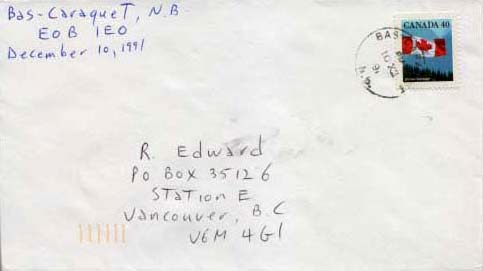 Bas-Caraquet, N.B
E0B 1E0
December 10, 1991
CANADA 40
BAS
R. Edward
PO BOX 35126
STATION E
Vancouver, B.C
V6M 4G1